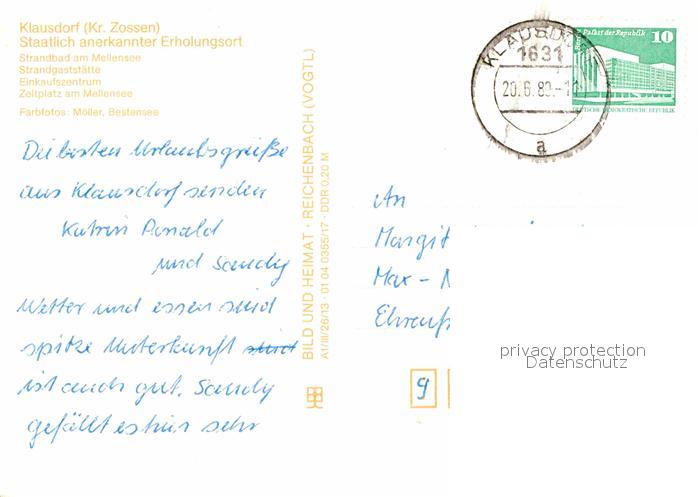 Klausdorf (Kr. Zossen)
Staatlich anerkannter Erholungsort
Strandbad am Mellensee
Strandgaststätte
Einkaufszentrum
Zeltplatz am Mellensee
Farbfotos: Möller, Bestensee
Die besten Urlaubsgrüße
aus Klausdorf senden
Katrin Ronald
und Sandy
Wetter und essen sind
spitze Unterkunft
ist auch gut. Sandy
gefällt es hier sehr
BILD UND HEIMAT · REICHENBACH (VOGTL)
A1/III/26/13 · 01 04 0355/17 · DDR 0,20 M
KLAUSDO
1631
20.6.89.-11
a
Palast der Republik
10
DEUTSCHE DEMOKRATISCHE REPUBLIK
An
Margit
Max -
9
privacy protection
Datenschutz